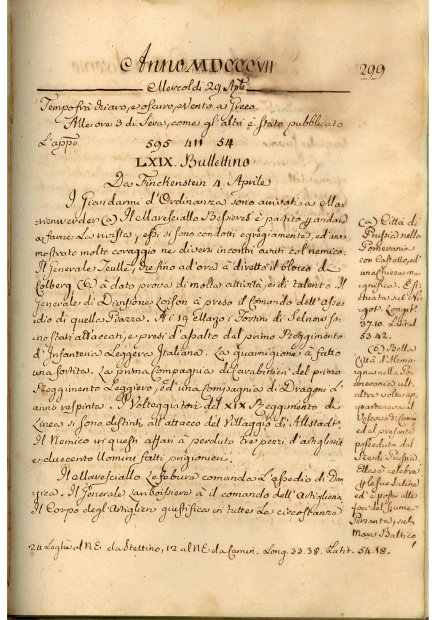 Anno MDCCCVII
299
Mercoldi 29 Aple
Tempo frà chiaro, e oscuro, e vento a Greco.
Alle ore 3 di Sera, come gl'altri è stato pubblicato
L'appo
595 411 54
LXIX. Bullettino
Da Finckenstein 4 Aprile
I Giandarmi d'Ordinanza sono arrivati a Ma-
rienwerder (a) Il Maresciallo Bessieres è partito p andare
a farne la rivista, essi si sono condotti egregiamente, ed ànno
mostrato molto coraggio ne diversi incontri avuti col nemico.
Il Generale Teulle, che fino ad'ora à diretto il blocco di
Colberg (b) à dato prova di molta attività, e di talento. Il
Generale di Divisione Loison à preso il Comando dell'Asse-
dio di quella Piazza. Ai 19 Marzo i Fortini di Selnow so-
no stati attaccati, e presi d'assalto dal primo Reggimento
d'Infanteria Leggera Italiano. La guarnigione à fatto
una sortita. La prima Compagnia di Carabinieri del primo
Reggimento Leggiero, ed una Compagnia di Dragoni L'
anno respinta. I Volteggiatori del XIX Reggimento di
Linea si sono distinti all'attacco del Villaggio di Allstadt.
Il Nemico in questi affari à perduto tre pezzi d'Artiglieria
e duecento Uomini fatti prigionieri.
Il Maresciallo Lefebure comanda L'assedio di Dan-
zica. Il Generale Lariboisiere à il comando dell'Artiglieria
Il Corpo degl'Artiglieri giustifica in tutte Le circostanze
(a) Città di
Prussia nella
Pomerania
con Castello, ed
una chiesa ma-
gnifica. È si-
tuata sul No-
gat. Longit.
37.10 Latitud.
53.42.
(b) Bella
Città d'Alema-
gna nella Po-
merania ult.
altre volte ap-
parteneva al
Vescovo di Camin
ed al presente
posseduta dal
Re di Prussia
Ella è celebre
p le sue Saline
ed è posta alla
foce del fiume
Persanta, sul
Mare Baltico,
24 Leghe al NE da Stettino, 12 al NE da Camin. Long. 33.38. Latit. 54.18.